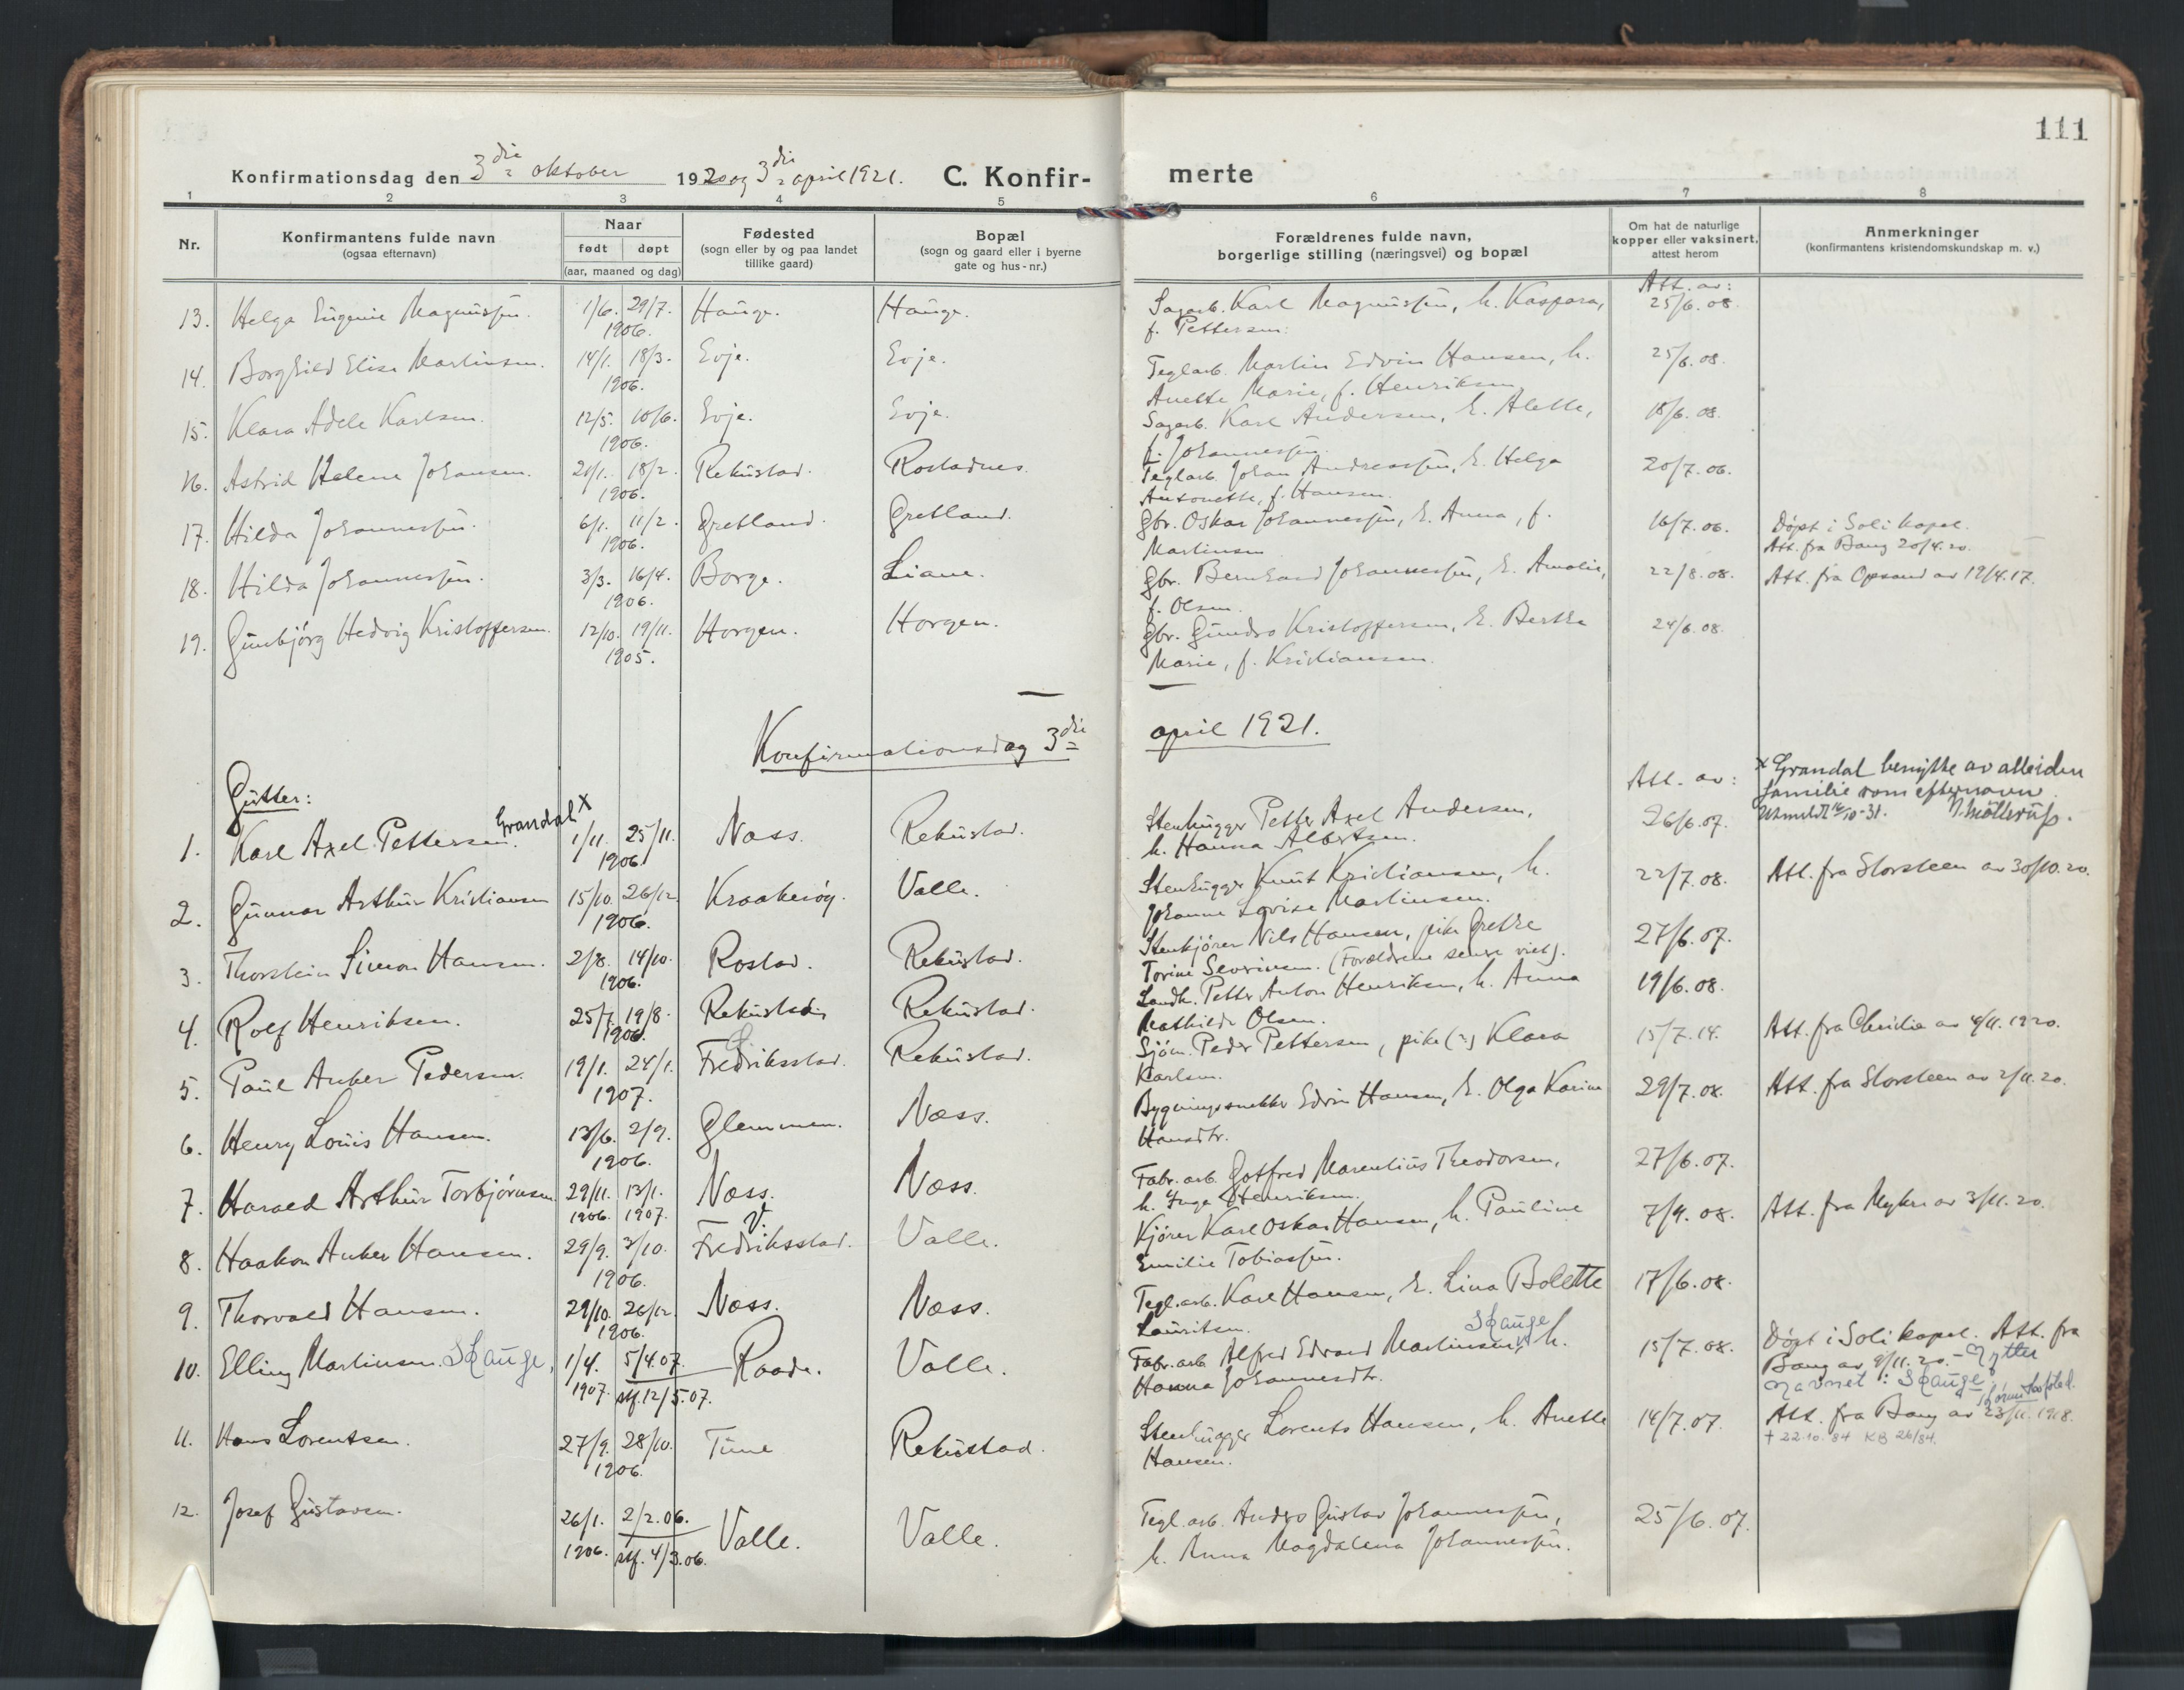 111
Konfirmationsdag den 3die oktober 1920 og 3die april 1921. C. Konfir- merte
1 2 3 4 5 6 7 8
Nr.
Konfirmantens fulde navn
(ogsaa efternavn)
Naar
født døpt
(aar, maaned og dag)
Fødested
(sogn eller by og paa landet
tillike gaard)
Bopæl
(sogn og gaard eller i byerne
gate og hus-nr.)
Forældrenes fulde navn,
borgerlige stilling (næringsvei) og bopæl
Om hat de naturlige
kopper eller vaksinert,
attest herom
Anmerkninger
(konfirmantens kristendomskundskap m. v.)
Att. av:
13. Helga Eugenie Magnussen. 1/6. 29/7. Hauge. Hauge. Sagarb. Karl Magnussen, h. Kaspara, 25/6. 08.
1906. f. Pettersen.
14. Borghild Elise Martinsen. 14/1. 18/3. Evje. Evje. Teglarb. Martin Edvin Hansen, h. 25/6. 08.
1906. Anette Marie, f. Henriksen.
15. Klara Adele Karlsen. 12/5. 10/6. Evje. Evje. Sagarb. Karl Andersen, h. Alette, 18/6. 08.
1906. f. Johannessen.
16. Astrid Helene Johansen. 21/1. 18/2. Rekustad. Rostadnes. Teglarb. Johan Andreassen, h. Helga 20/7. 06.
1906. Antonette, f. Hansen.
17. Hilda Johannessen. 6/1. 11/2. Gretland. Gretland. Gbr. Oskar Johannessen, h. Anna, f. 16/7. 06. Døpt i Soli kapel.
1906. Martinsen Att. fra Bang 20/4. 20.
18. Hilda Johannessen. 3/3. 16/4. Borge. Liane. Gbr. Bernhard Johannessen, h. Amalie, 22/8. 08. Att. fra Opsand av 19/4. 17.
1906. f. Olsen.
19. Gunbjørg Hedvig Kristoffersen. 12/10. 19/11. Horgen. Horgen. Gbr. Gundro Kristoffersen, h. Berthe 24/6. 08.
1905. Marie, f. Kristiansen.
Konfirmationsdag 3die april 1921.
Gutter: Att. av: x Grandal benytte av
familie som efternavn.
Utmeldt 16/10-31.
1. Karl Axel Pettersen. Grandal x 1/11. 25/11. Næss. Rekustad. Stenhugger Petter Axel Andersen, 26/6. 07.
1906. h. Hanna Albertsen.
2. Gunnar Arthur Kristiansen 15/10. 26/12. Kraakerøy. Valle. Stenhugger Knut Kristiansen, h. 22/7. 08. Att. fra Storsteen av 30/10. 20.
1906. Johanne Lovise Martinsen.
3. Thorstein Simon Hansen. 2/8. 14/10. Rostad. Rekustad. Stenkjører Nils Hansen, pike Grethe 27/6. 07.
1906. Torine Severinsen. (Forældrene senere viet).
4. Rolf Henriksen. 25/7. 19/8. Rekustad. Rekustad. Landh. Petter Anton Henriksen, h. Anna 19/6. 08.
1906. Mathilde Olsen.
5. Paul Anker Pedersen. 19/1. 24/1. Fredriksstad. Rekustad. Sjøm. Peder Pettersen, pike (?) Klara 15/7. 14. Att. fra Christie av 4/11. 1920.
1907. Karlsen.
6. Henry Louis Hansen. 13/6. 2/9. Glemmen. Næss. Bygningssnekker Edvin Hansen, h. Olga Karine 29/7. 08. Att. fra Storsteen av 2/11. 20.
1906. Hansdtr.
7. Harald Arthur Torbjørnsen 29/11. 13/1. Næss. Næss. Fabr. arb. Gotfred Marentius Theodorsen, 27/6. 07.
1906. 1907. h. Inga Henriksen.
8. Haakon Anker Hansen. 29/9. 3/10. V. Fredriksstad. Valle. Kjører Karl Oskar Hansen, h. Pauline 7/9. 08. Att. fra Myhre av 3/11. 20.
1906. Emilie Tobiassen.
9. Thorvald Hansen. 29/10. 26/12. Næss. Næss. Tegl. arb. Karl Hansen, h. Lina Bolette 17/6. 08.
1906. Lauritsen.
10. Elling Martinsen. Skauge, 1/4. 5/4. 07. Raade. Valle. Fabr. arb. Alfred Edvard Martinsen, Skauge h. 15/7. 08. Døpt i Soli kapel. Att. fra
1907. stf. 12/5. 07. Hanna Johannesdtr. Bang av 9/11. 20. - Nytter
navnet: Skauge.
11. Hans Lorentsen. 27/9. 28/10. Tune Rekustad. Stenhugger Lorents Hansen, h. Anette 14/7. 07. Att. fra Bang av 23/11. 1918.
1906. Hansen. † 22.10.84 KB 26/84.
12. Josef Gustavsen. 26/1. 2/2. 06. Valle. Valle. Tegl. arb. Andro Gustav Johannessen, 25/6. 07.
1906. stf. 4/3. 06. h. Anna Magdalena Johannessen.